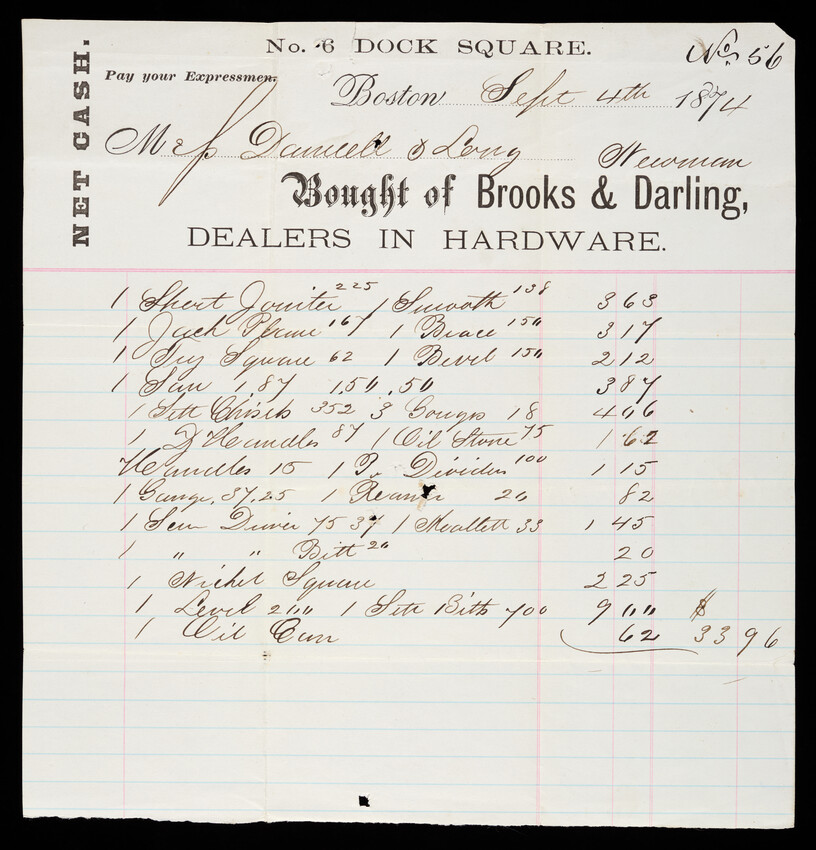 No. 6 DOCK SQUARE.
No. 56
NET CASH.
Pay your Expressmen.
Boston Sept 4th 1874
Mess & Long Newman
Bought of Brooks & Darling,
DEALERS IN HARDWARE.
1 Short Jointer 225 1 Smooth 138 3 63
1 Jack Plane 167 1 Brace 150 3 17
1 Try Square 62 1 Bevel 150 2 12
1 Saw 1 87 1,50 ,50 3 87
1 Sett Chisels 352 3 Gouges 18 4 06
1 D Handles 87 1 Oil Stone 75 1 62
Handles 15 1 Pr Dividers 100 1 15
1 Gauge, 37, 25 1 Reamer 20 82
1 Scw Driver 75 37 1 Mallett 33 1 45
1 " " Bitt 20 20
1 Nickel Square 2 25
1 Level 200 1 Sett Bitts 700 9 00 $
1 Oil Can 62 33 96